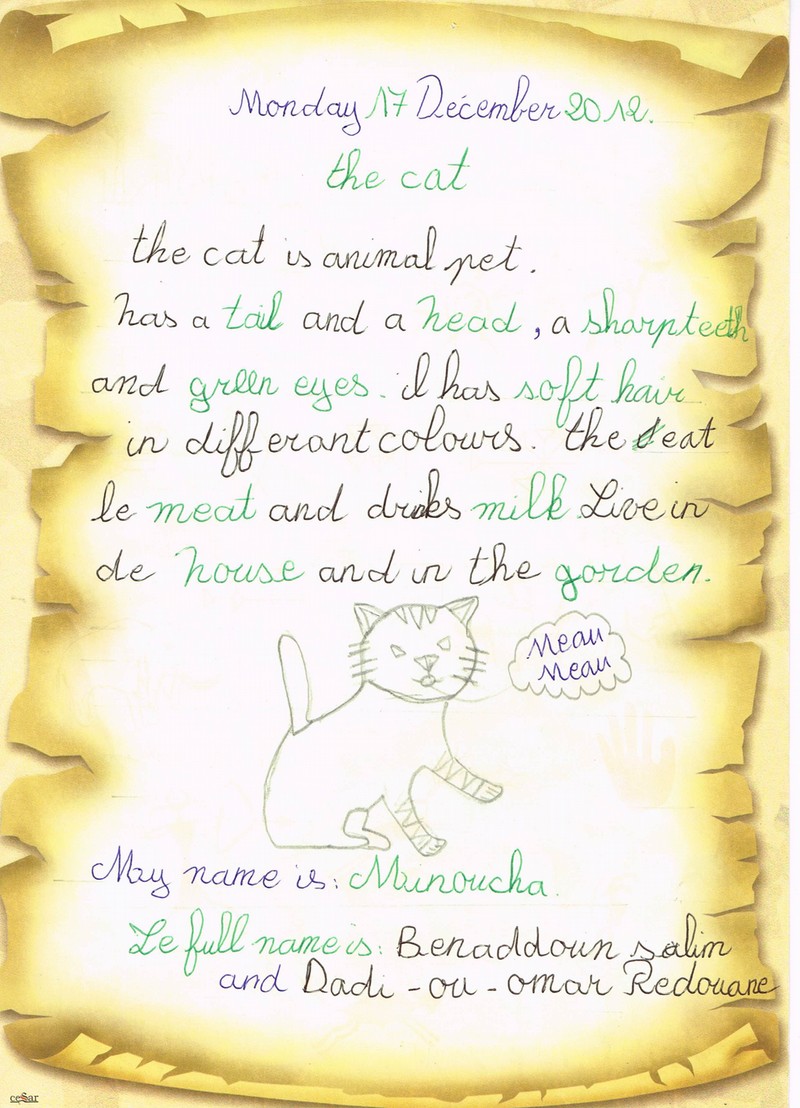 Monday 17 Décember 2012.
the cat
the cat is animal pet.
has a tail and a head, a sharp teeth
and green eyes. il has soft hair
in differant colours. the eat
le meat and drinks milk Live in
de house and in the garden.
Meau
Meau
May name is: Minoucha.
Le full name is: Benaddoun salim
and Dadi-ou-omar Redouane
ceSar